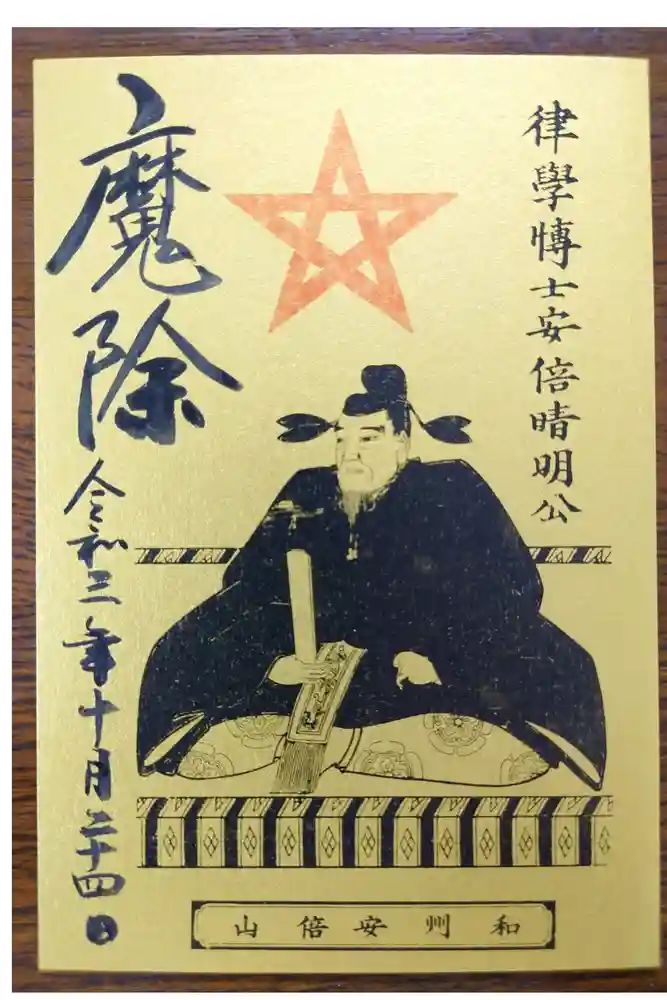 律學博士安倍晴明公
魔除
令和三年十月二十四日
和州安倍山